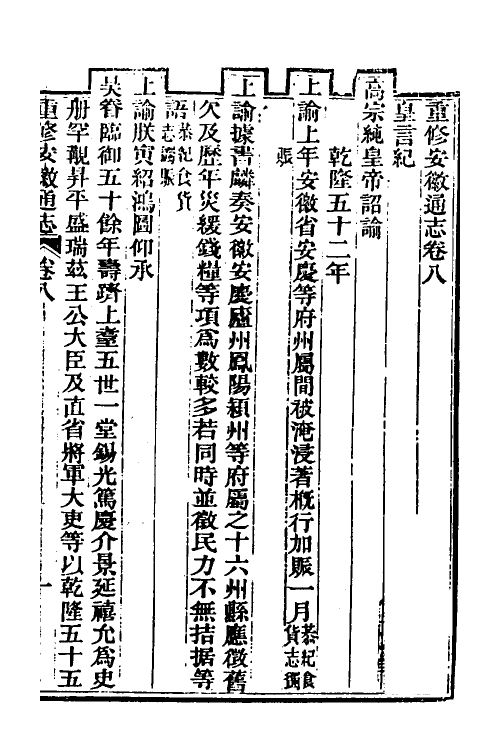 重修安徽通志卷八
皇言紀
高宗純皇帝詔諭
乾隆五十二年
上諭上年安徽省安慶等府州屬間被淹浸著概行加賑一月恭紀食貨志蠲賑
上諭據書麟奏安徽安慶廬州鳳陽潁州等府屬之十六州縣應徵舊
欠及歷年災緩錢糧等項爲數較多若同時並徵民力不無拮据等
語恭紀食貨志蠲賑
上諭朕寅紹鴻圖仰承
昊眷臨御五十餘年壽躋上耋五世一堂錫光篤慶介景延禧允爲史
册罕觀昇平盛瑞茲王公大臣及直省將軍大吏等以乾隆五十五
重修安徽通志 卷八 一